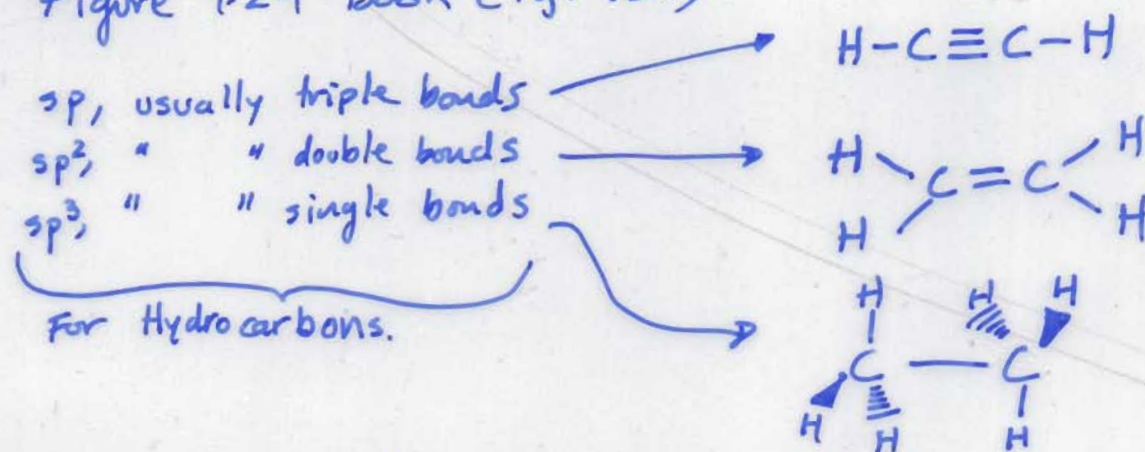 Figure 1-24 book
H-C≡C-H
sp, usually triple bonds
sp², " " double bonds
sp³, " " single bonds
For Hydrocarbons.
H H
C=C
H H
H H H
C — C
H H H